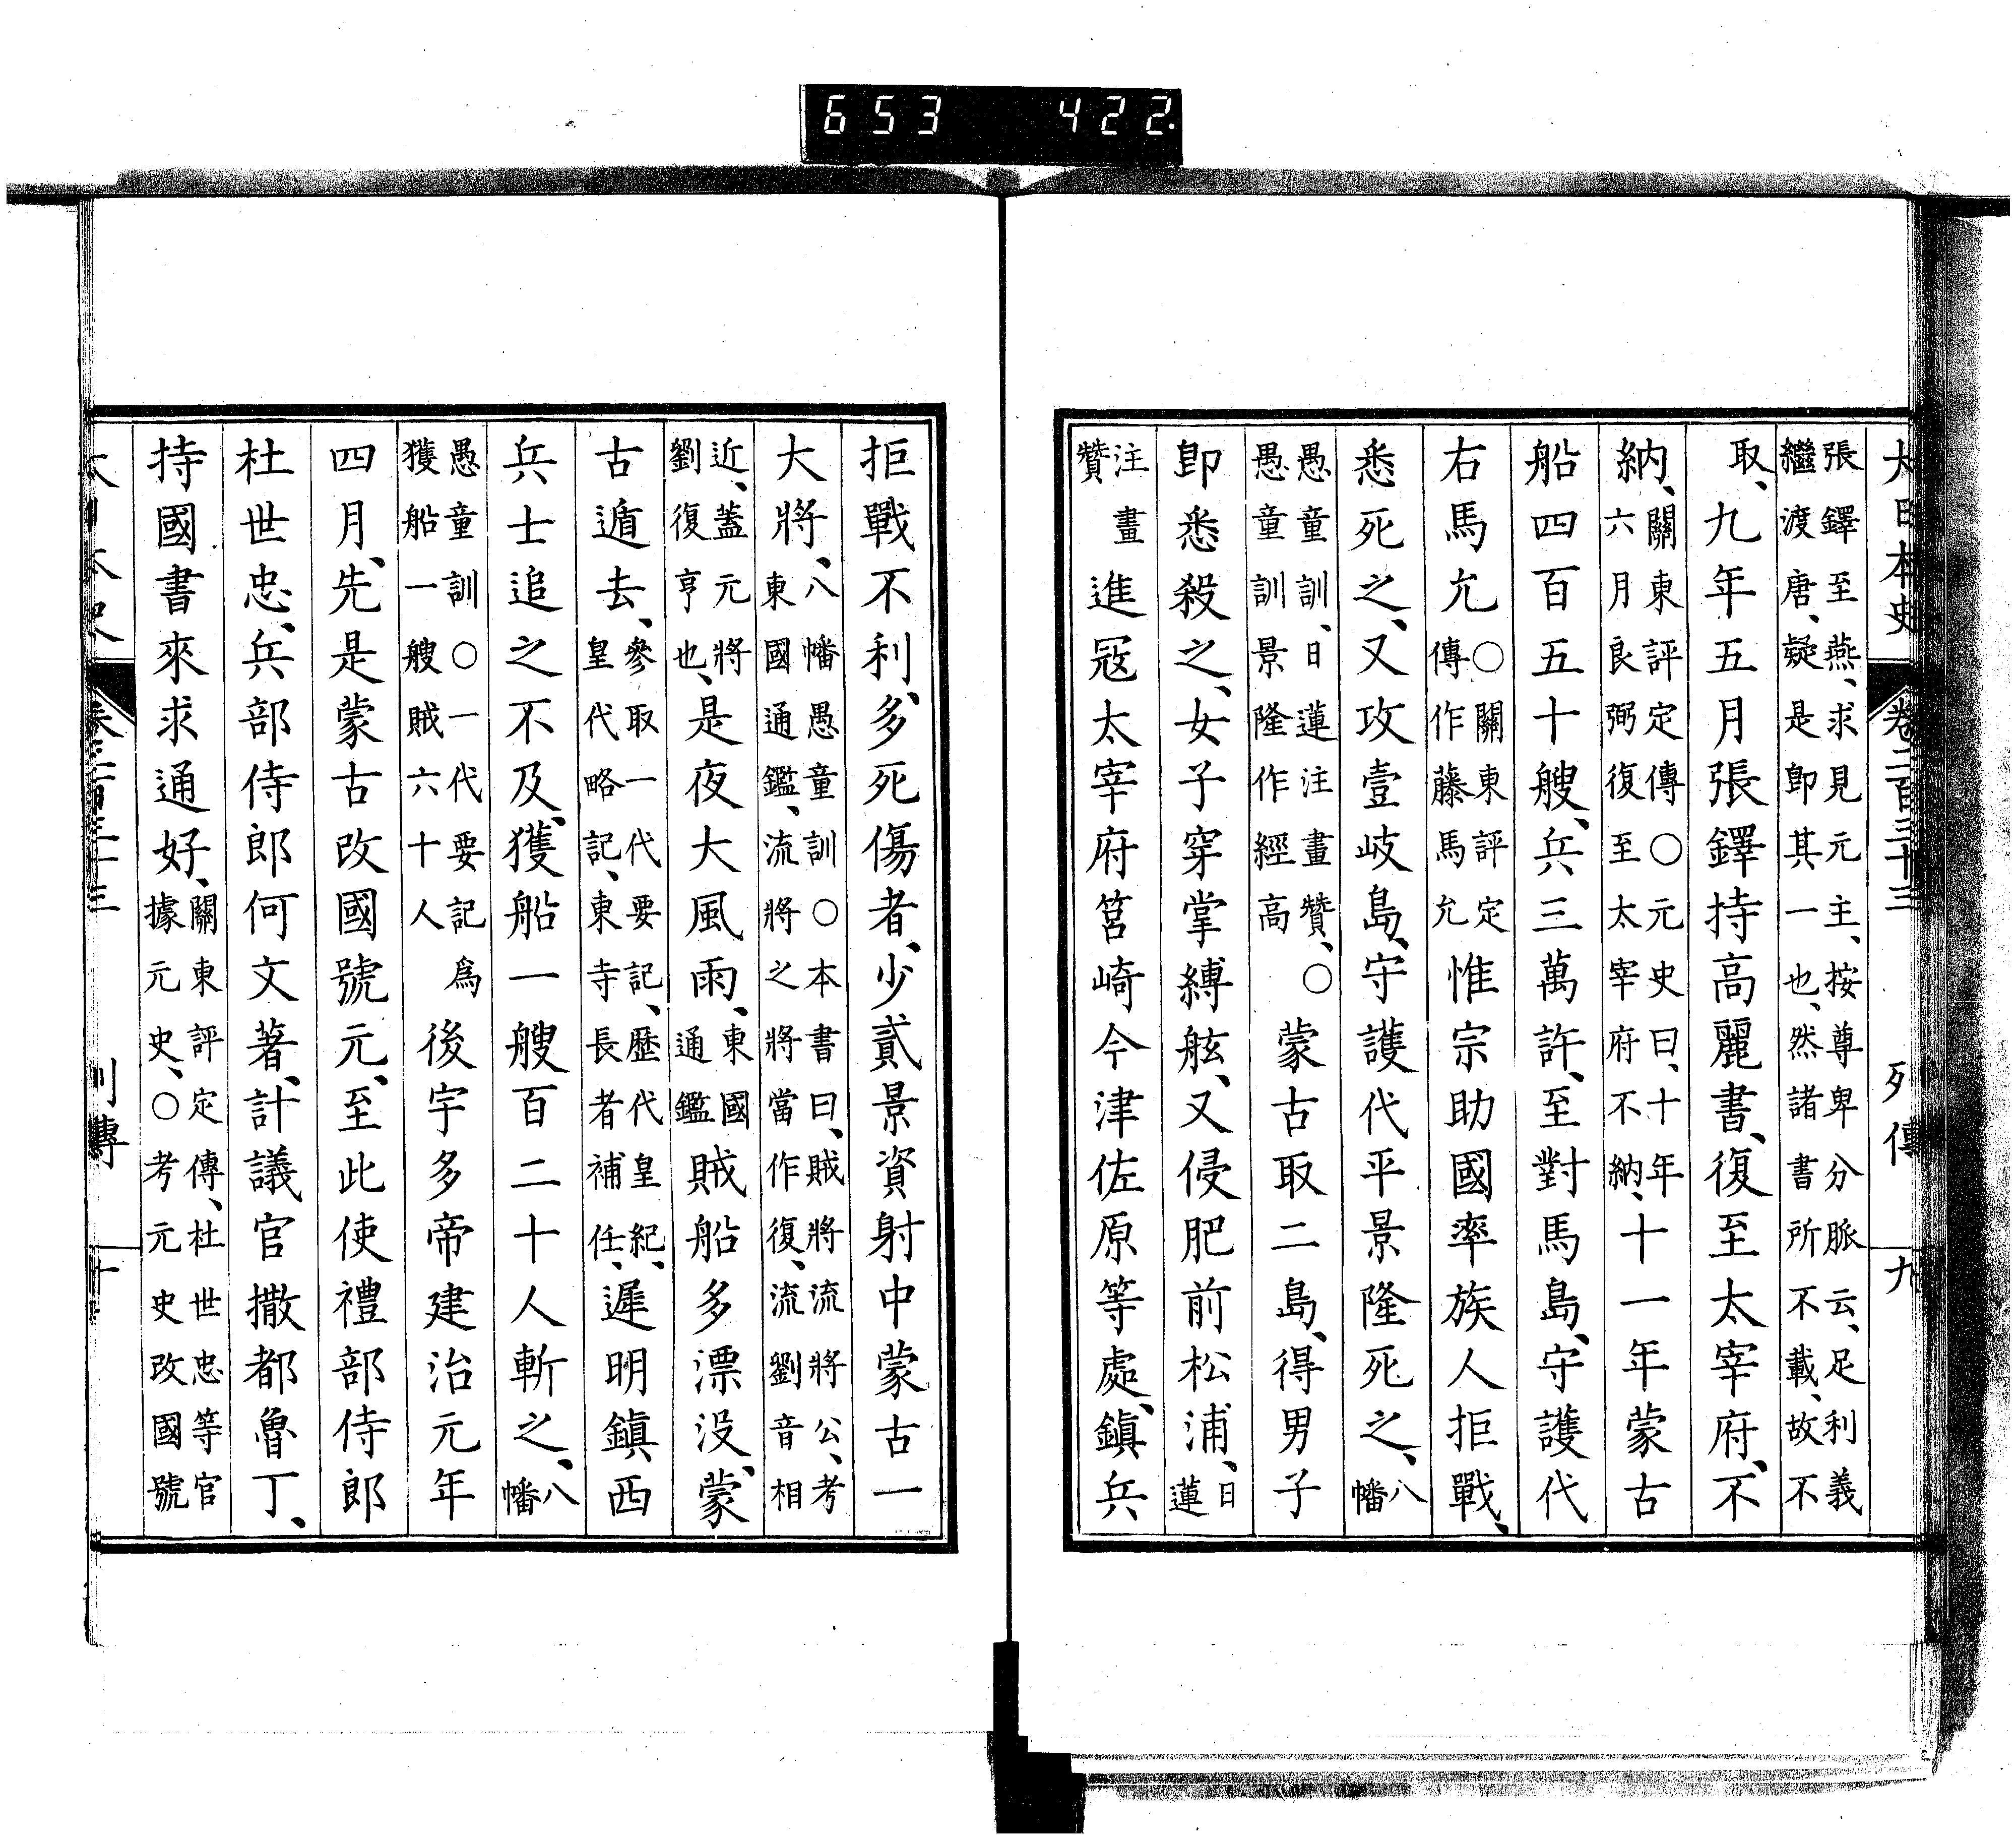 653 422
大日本史 卷二百三十三 列傳 九
張鐸至燕、求見元主、按尊卑分脈云、足利義
繼渡唐、疑是卽其一也、然諸書所不載、故不
取、九年五月張鐸持高麗書、復至太宰府、不
納、關東評定傳○元史曰、十年
六月良弼復至太宰府不納、十一年蒙古
船四百五十艘、兵三萬許、至對馬島、守護代
右馬允○關東評定
傳作藤馬允惟宗助國率族人拒戰、
悉死之、又攻壹岐島、守護代平景隆死之、八
幡
愚童訓、日蓮注畫贊、○
愚童訓景隆作經高蒙古取二島、得男子
卽悉殺之、女子穿掌縛舷、又侵肥前松浦、日
蓮
注畫
贊進寇太宰府筥崎今津佐原等處、鎭兵
拒戰不利、多死傷者、少貳景資射中蒙古一
大將、八幡愚童訓○本書曰、賊將流將公、考
東國通鑑、流將之將當作復、流劉音相
近、蓋元將
劉復亨也、是夜大風雨、東國
通鑑賊船多漂沒、蒙
古遁去、參取一代要記、歷代皇紀、
皇代略記、東寺長者補任、遲明鎭西
兵士追之不及、獲船一艘百二十人斬之、八
幡
愚童訓○一代要記爲
獲船一艘賊六十人後宇多帝建治元年
四月、先是蒙古改國號元、至此使禮部侍郎
杜世忠、兵部侍郎何文著、計議官撒都魯丁、
持國書來求通好、關東評定傳、杜世忠等官
據元史、○考元史改國號
列傳